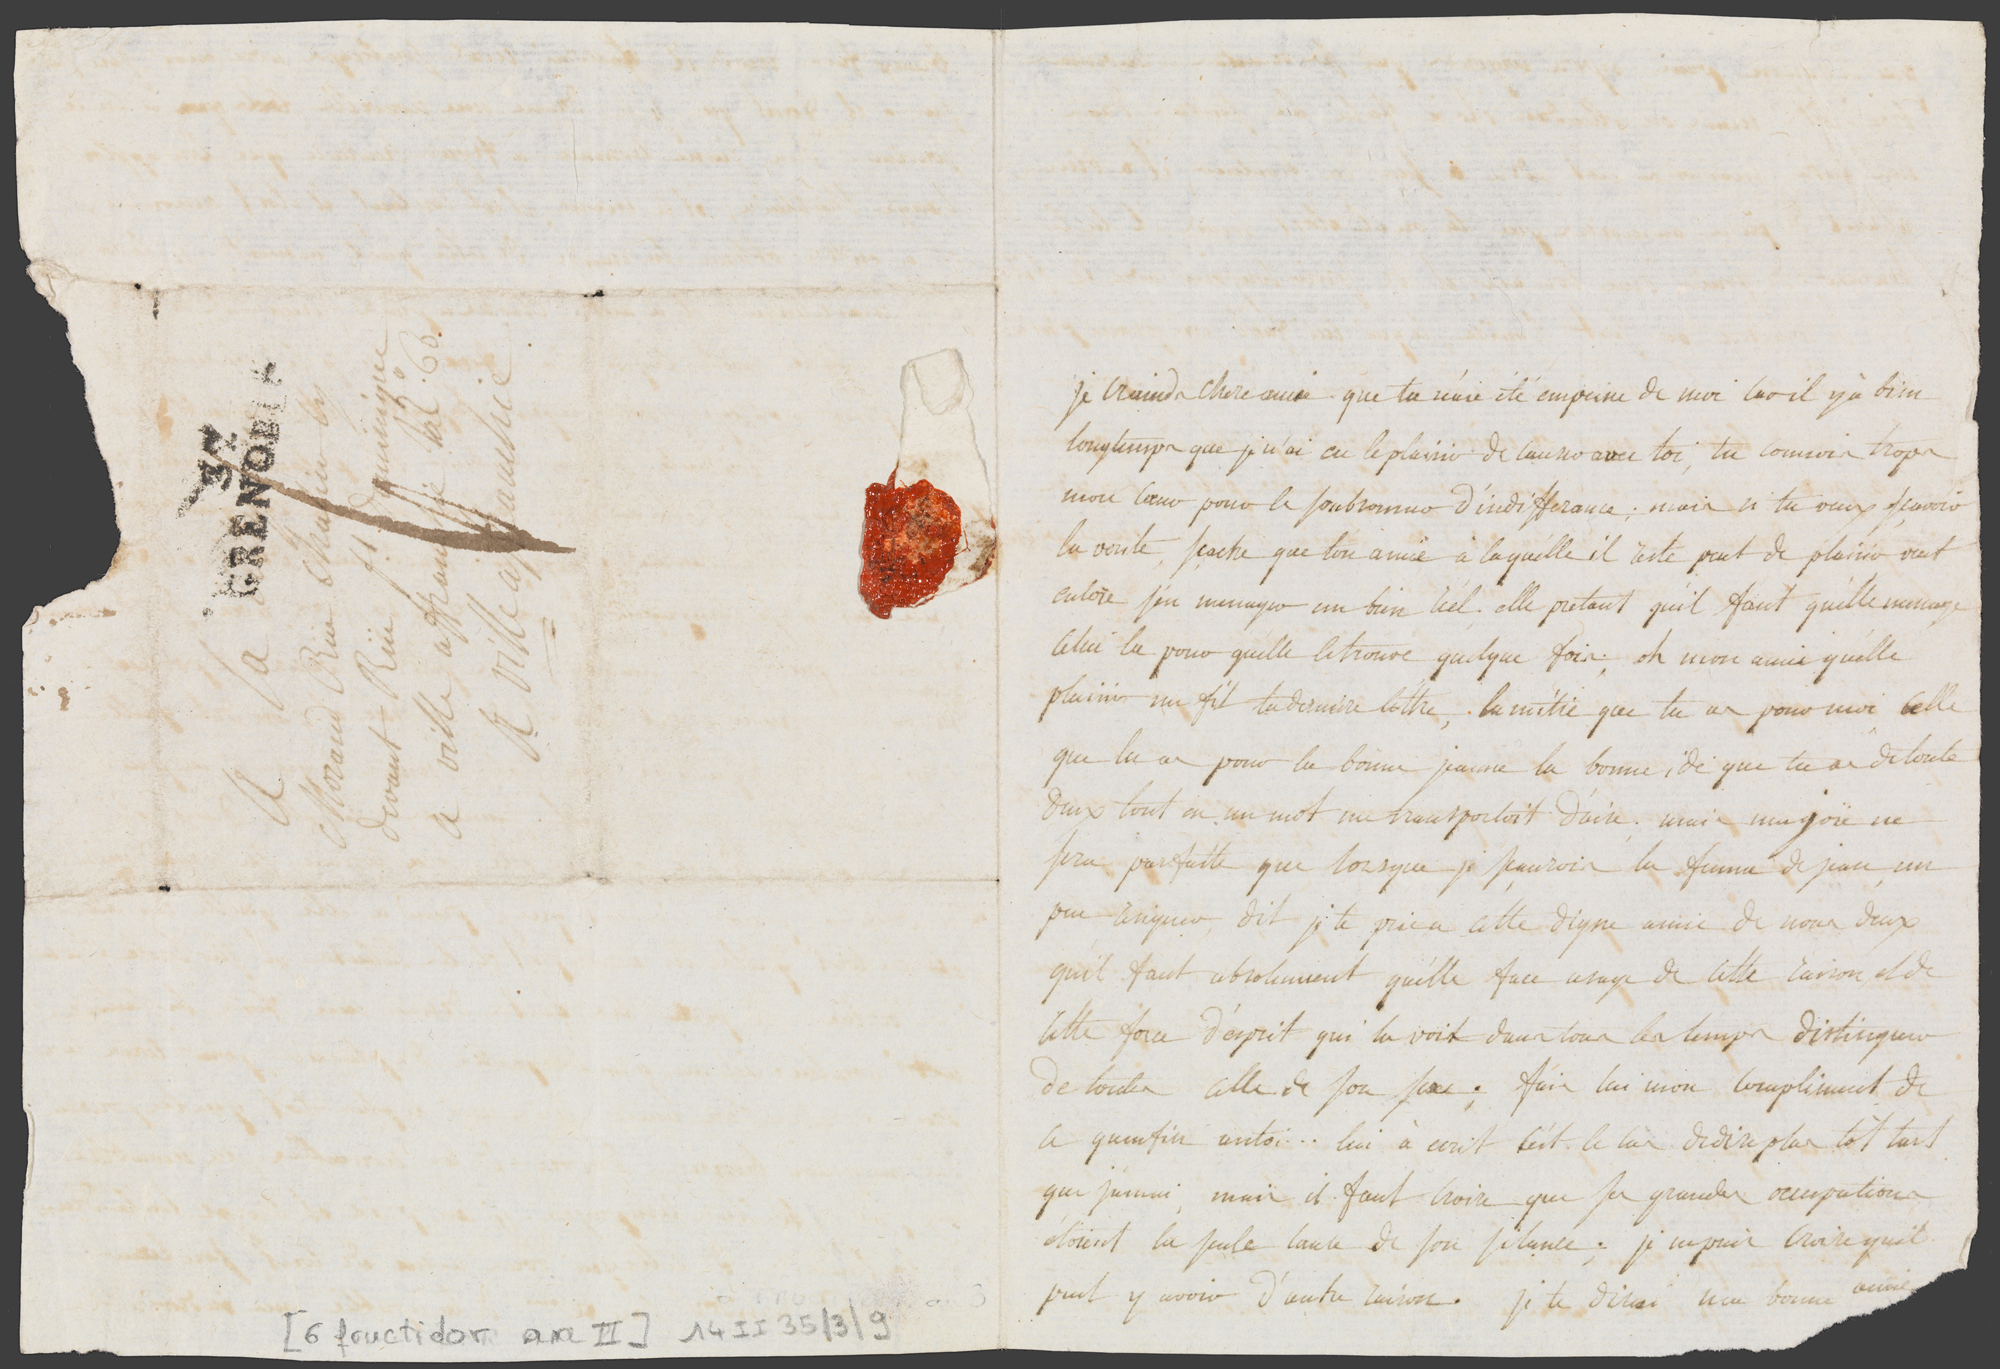 37
GRENOBLE
A La
Morand Rue Chalier cy
devant Rue St Dominique
a ville affranchie No 60.
A ville affranchie
[6 fructidor an II] 14 II 35/3/9
je crainds chere amie que tu n'aie été empeine de moi car il y à bien
longtemps que je n'ai eu le plaisir de causer avec toi, tu connois trops
mon cœur pour le soubsonner d'indifferance; mais si tu veux sçavoir
la verité, sache que ton amie à laquélle il reste peut de plaisir veut
encore s'en menager un bien réel. elle pretant qu'il faut qu'élle menage
celui la pour qu'élle le trouve quelque fois; oh mon amie qu'élle
plaisir me fit ta derniere léttre, lamitié que tu as pour moi celle
que tu as pour la bonne jeanne la bonne idé que tu as de toute
deux tout en un mot me transportoit d'aise. mais ma joïe ne
sera parfaite que lorsque je sçaurois la femme de jean un
peu dit je te prie a cette digne amie de nous deux
qu'il faut absolument qu'élle face usage de cette raison et de
cette force d'esprit qui la voit dans tous les temps distinguer
de toutes celle de son sexe; fais lui mon compliment de
ce quenfin antoi... lui à ecrit c'ést le cas de dire plus tôt tart
que jamai, mais il faut croire que ses grandes occupations
étoient la seule cause de son silance; je ne puis croire qu'il
peut y avoir d'autre raison. je te dirai ma bonne amie